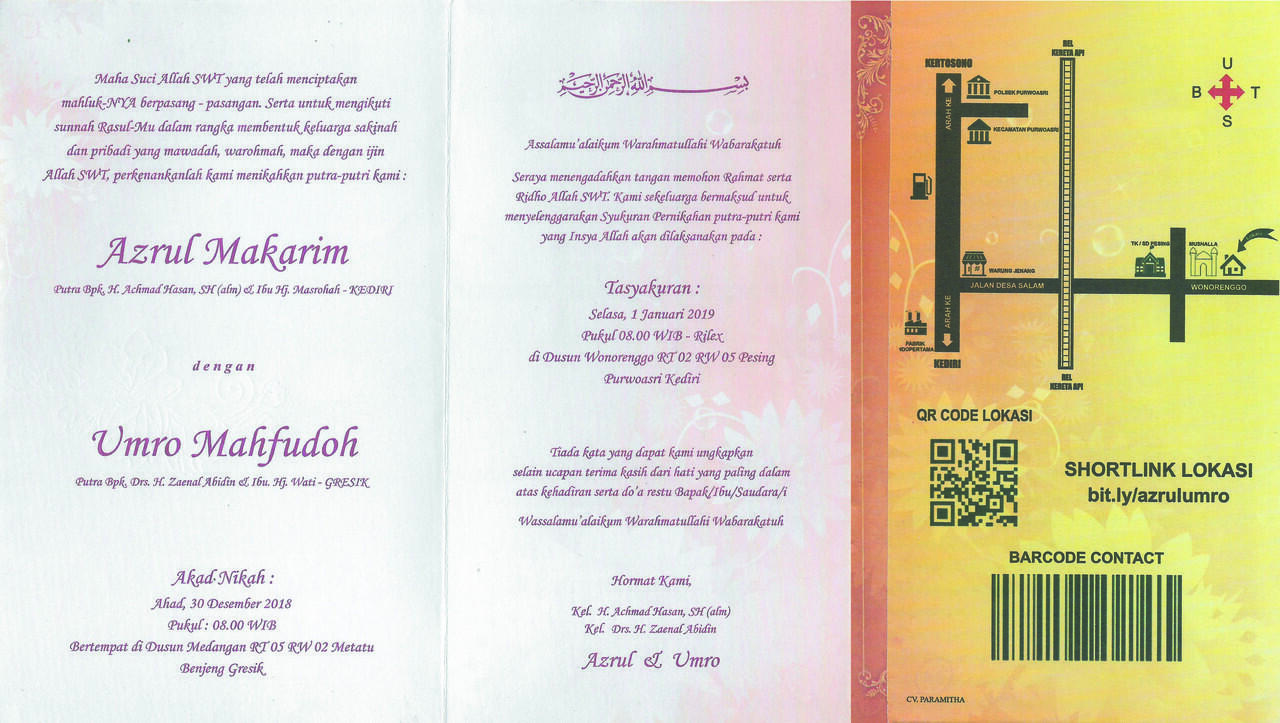 Maha Suci Allah SWT yang telah menciptakan
mahluk-NYA berpasang - pasangan. Serta untuk mengikuti
sunnah Rasul-Mu dalam rangka membentuk keluarga sakinah
dan pribadi yang mawadah, warohmah, maka dengan ijin
Allah SWT, perkenankanlah kami menikahkan putra-putri kami :
Azrul Makarim
Putra Bpk. H. Achmad Hasan, SH (alm) & Ibu Hj. Masrohah - KEDIRI
dengan
Umro Mahfudoh
Putra Bpk. Drs. H. Zaenal Abidin & Ibu. Hj. Wati - GRESIK
Akad Nikah :
Ahad, 30 Desember 2018
Pukul : 08.00 WIB
Bertempat di Dusun Medangan RT 05 RW 02 Metatu
Benjeng Gresik
بسم الله الرحمن الرحيم
Assalamu'alaikum Warahmatullahi Wabarakatuh
Seraya menengadahkan tangan memohon Rahmat serta
Ridho Allah SWT. Kami sekeluarga bermaksud untuk
menyelenggarakan Syukuran Pernikahan putra-putri kami
yang Insya Allah akan dilaksanakan pada :
Tasyakuran :
Selasa, 1 Januari 2019
Pukul 08.00 WIB - Rilex
di Dusun Wonorenggo RT 02 RW 05 Pesing
Purwoasri Kediri
Tiada kata yang dapat kami ungkapkan
selain ucapan terima kasih dari hati yang paling dalam
atas kehadiran serta do'a restu Bapak/Ibu/Saudara/i
Wassalamu'alaikum Warahmatullahi Wabarakatuh
Hormat Kami,
Kel. H. Achmad Hasan, SH (alm)
Kel. Drs. H. Zaenal Abidin
Azrul & Umro
REL
KERETA API
KERTOSONO
U
B T
S
POLSEK PURWOASRI
ARAH KE
KECAMATAN PURWOASRI
TK / SD PESING
MUSHALLA
WARUNG JENANG
JALAN DESA SALAM
WONORENGGO
ARAH KE
PABRIK
KEDIRI
REL
KERETA API
QR CODE LOKASI
SHORTLINK LOKASI
bit.ly/azrulumro
BARCODE CONTACT
CV. PARAMITHA